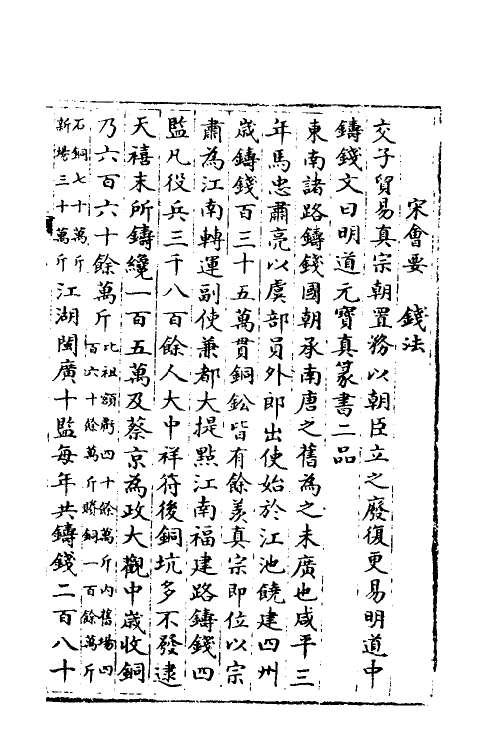 宋會要　錢法
交子貿易真宗朝置務以朝臣立之廢復更易明道中
鑄錢文曰明道元寶真篆書二品
東南諸路鑄錢國朝承南唐之舊為之未廣也咸平三
年馬忠肅亮以虞部員外郎出使始於江池饒建四州
歲鑄錢百三十五萬貫銅鈆皆有餘羨真宗即位以宗
肅為江南轉運副使兼都大提點江南福建路鑄錢四
監凡役兵三千八百餘人大中祥符後銅坑多不發逮
天禧末所鑄纔一百五萬及蔡京為政大觀中歲收銅
乃六百六十餘萬斤比祖額虧四十餘萬斤內舊場四百六十餘萬斤膽銅一百餘萬斤
石銅七十萬斤新場三十萬斤江湖閩廣十監每年共鑄錢二百八十